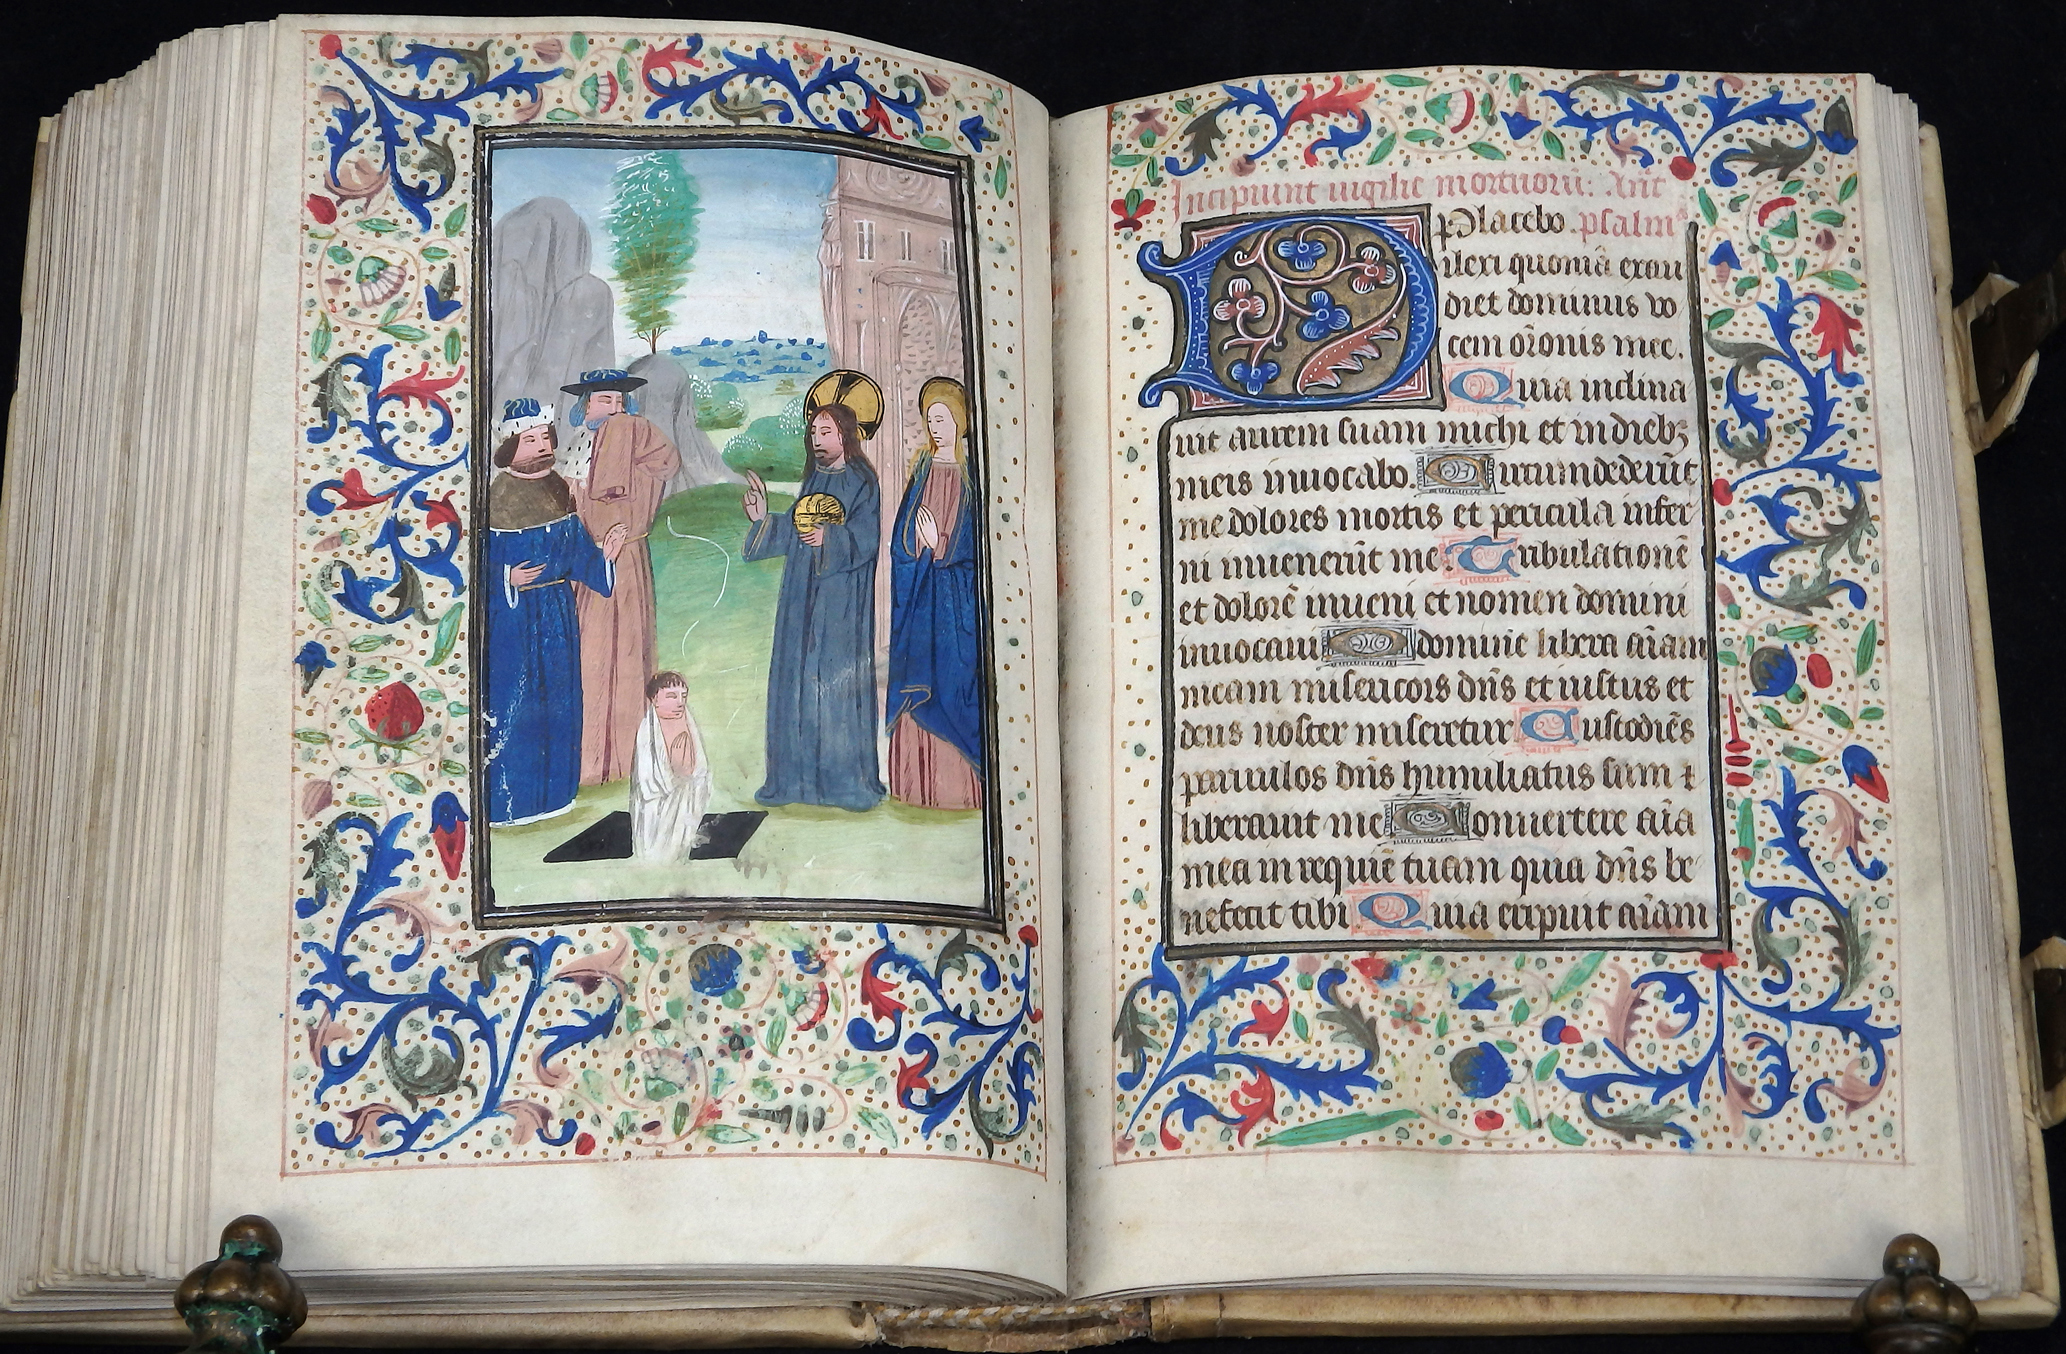 Incipiunt vigilie mortuorū: Ant̄
Placebo psalmˢ
Dilexi quoniā exau
diet dominus vo
cem ōronis mee.
Quia inclina
uit aurem suam michi et in diebꝫ
meis inuocabo. Circumdederūt
me dolores mortis et pericula infer
ni inuenerūt me. Tribulationē
et dolorē inueni et nomen domini
inuocaui O domine libera aīam
meam misericors dn̄s et iustus et
deus noster miseretur Custodiēs
paruulos dn̄s humiliatus sum ⁊
liberauit me Conuertere aīa
mea in requiē tuam quia dn̄s be
nefecit tibi Quia eripuit aīam